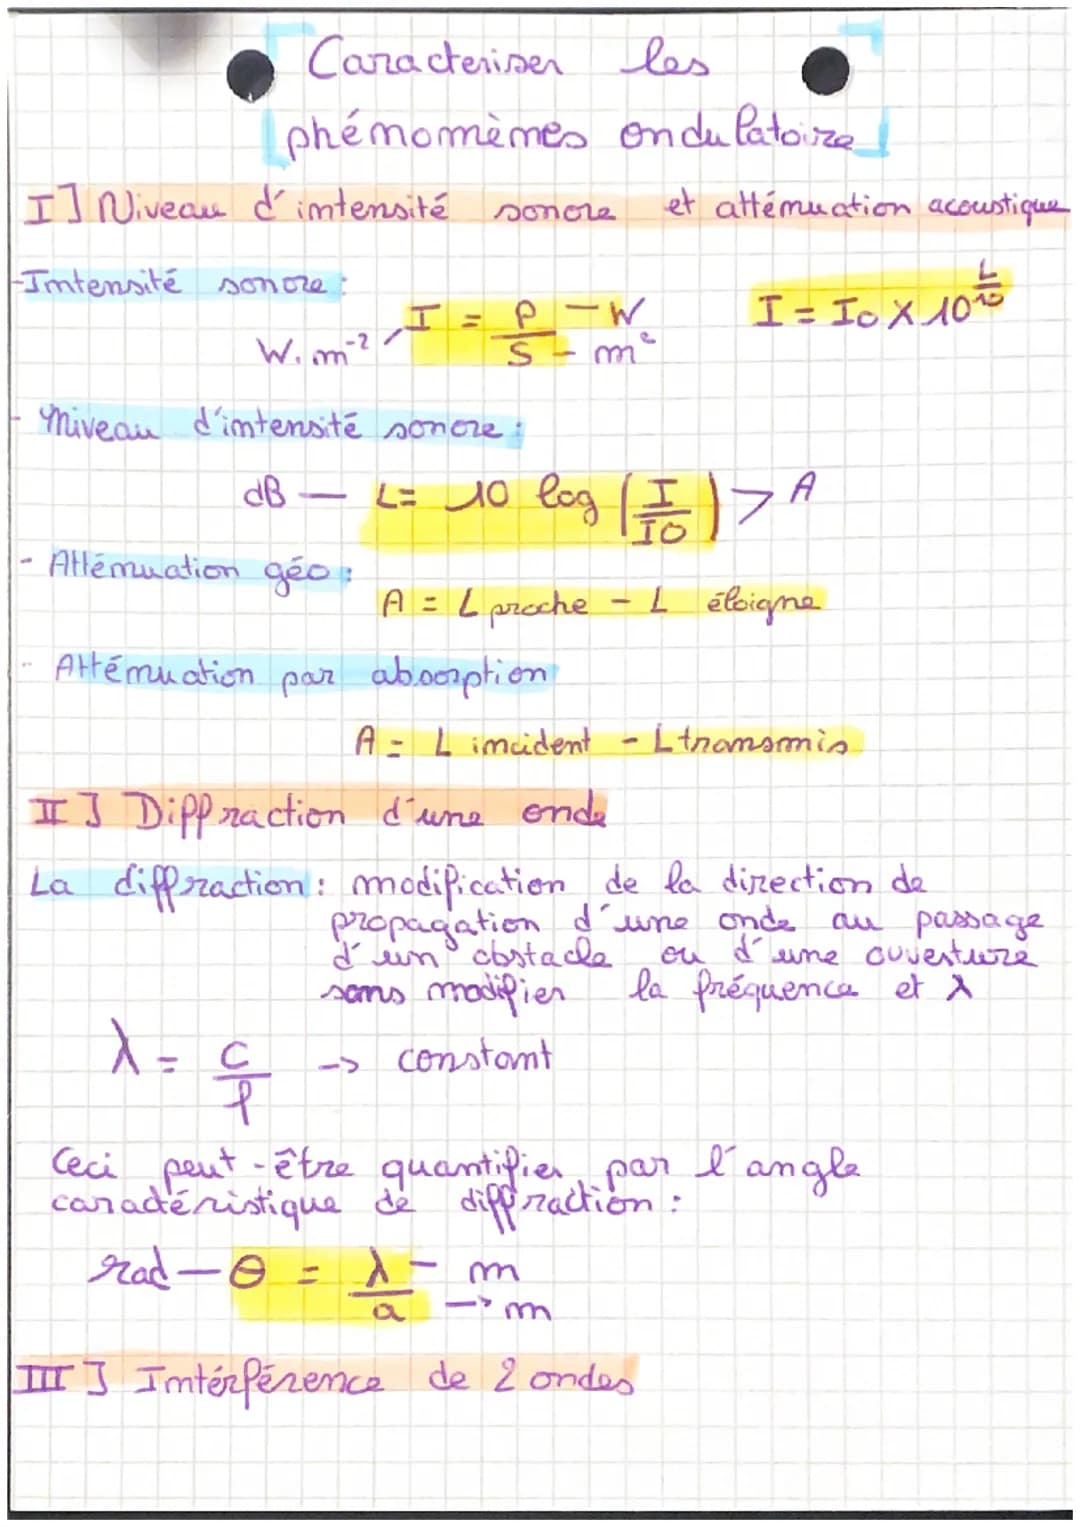 Caracteriser les
phénomènes ondulatoire
I] Niveau d'intensité sonore et atténuation acoustique
-Intensité sonore :
W.m⁻² I = P/S - W - m² I = I0 X 10^(L/10)
- Niveau d'intensité sonore :
dB — L= 10 log (I/I0) > A
- Atténuation géo :
A = L proche - L éloigne
- Atténuation par absorption
A = L incident - L transmis
II] Diffraction d'une onde
La diffraction : modification de la direction de
propagation d'une onde au passage
d'un obstacle ou d'une ouverture
sans modifier la fréquence et λ
λ = c/f -> constant
Ceci peut-être quantifier par l'angle
caractéristique de diffraction :
rad — θ = λ/a - m -> m
III] Intérférence de 2 ondes